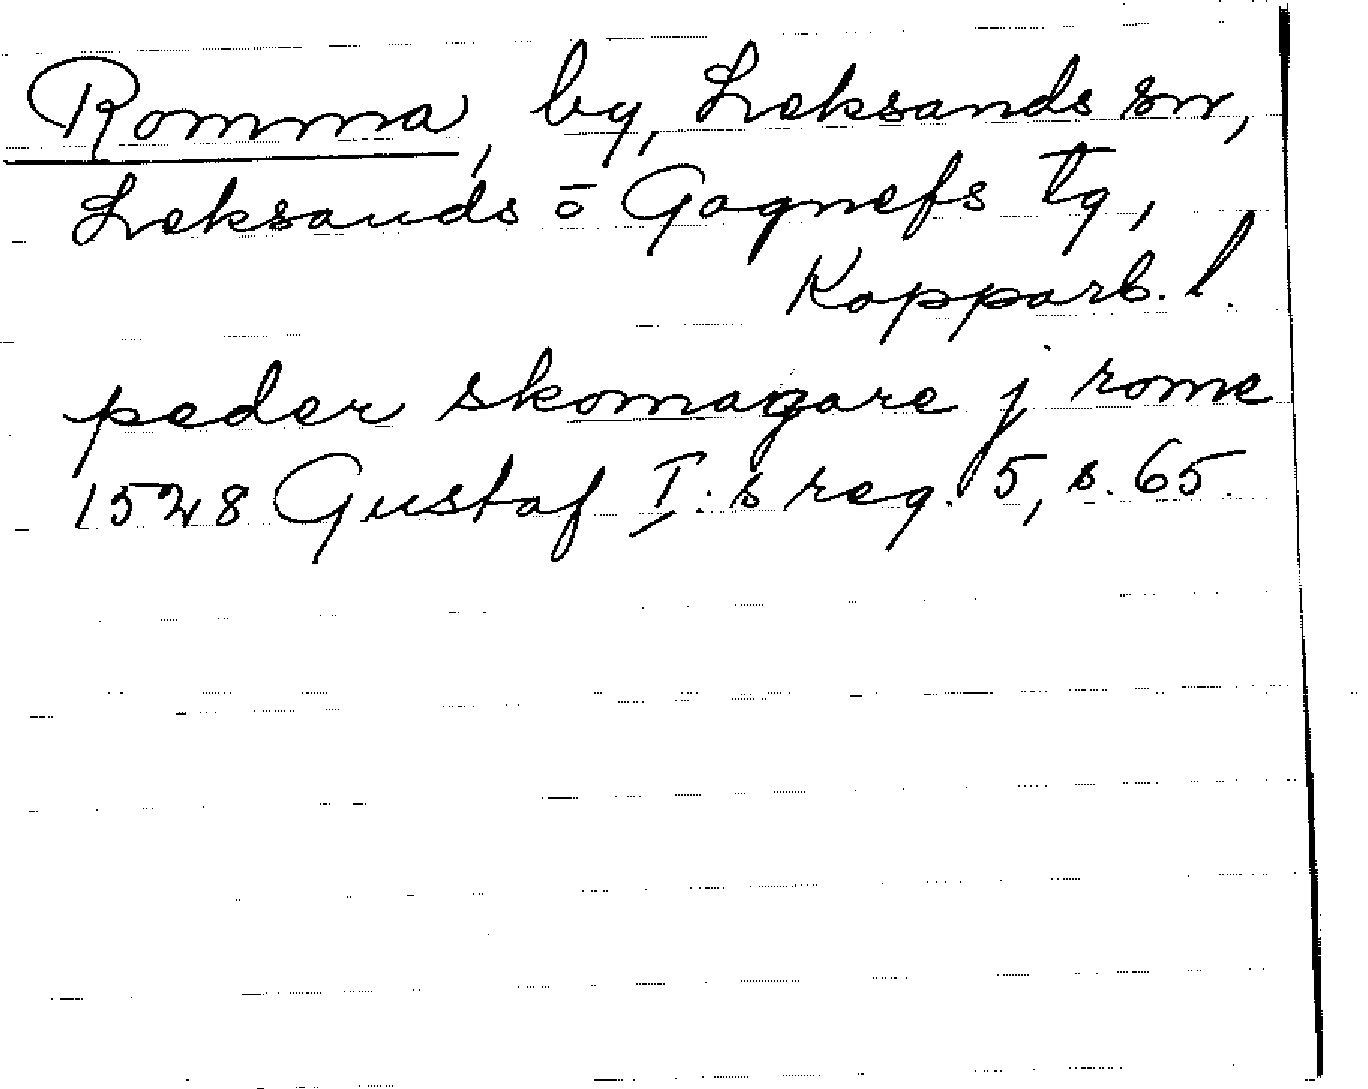 Romma, by, Leksands sn,
Leksands o Gagnefs tg,
Kopparb. l.
peder skomagare j rome
1528 Gustaf I:s reg. 5, s. 65.